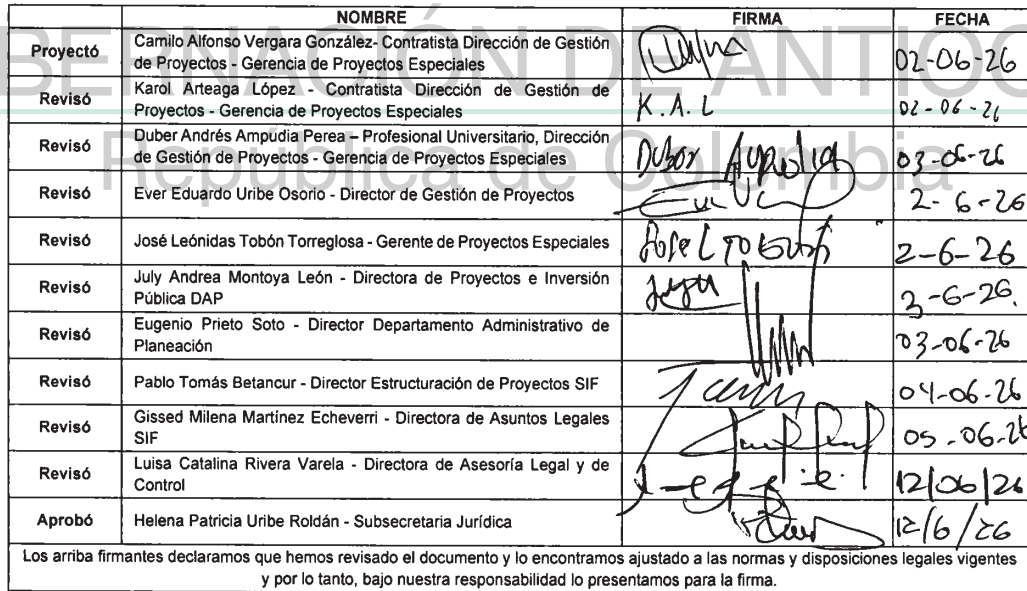 BERNACIÓN DE ANTIOQ
República de Colombia
NOMBRE FIRMA FECHA
Proyectó Camilo Alfonso Vergara González- Contratista Dirección de Gestión
de Proyectos - Gerencia de Proyectos Especiales 02-06-26
Revisó Karol Arteaga López - Contratista Dirección de Gestión de
Proyectos - Gerencia de Proyectos Especiales K.A.L 02-06-26
Revisó Duber Andrés Ampudia Perea – Profesional Universitario, Dirección
de Gestión de Proyectos - Gerencia de Proyectos Especiales Duber Ampudia 03-06-26
Revisó Ever Eduardo Uribe Osorio - Director de Gestión de Proyectos 2-6-26
Revisó José Leónidas Tobón Torreglosa - Gerente de Proyectos Especiales Jose L Tobon 2-6-26
Revisó July Andrea Montoya León - Directora de Proyectos e Inversión
Pública DAP 3-6-26.
Revisó Eugenio Prieto Soto - Director Departamento Administrativo de
Planeación 03-06-26
Revisó Pablo Tomás Betancur - Director Estructuración de Proyectos SIF 04-06-26
Revisó Gissed Milena Martínez Echeverri - Directora de Asuntos Legales
SIF 05-06-26
Revisó Luisa Catalina Rivera Varela - Directora de Asesoría Legal y de
Control 12/06/26
Aprobó Helena Patricia Uribe Roldán - Subsecretaria Jurídica 12/6/26
Los arriba firmantes declaramos que hemos revisado el documento y lo encontramos ajustado a las normas y disposiciones legales vigentes
y por lo tanto, bajo nuestra responsabilidad lo presentamos para la firma.